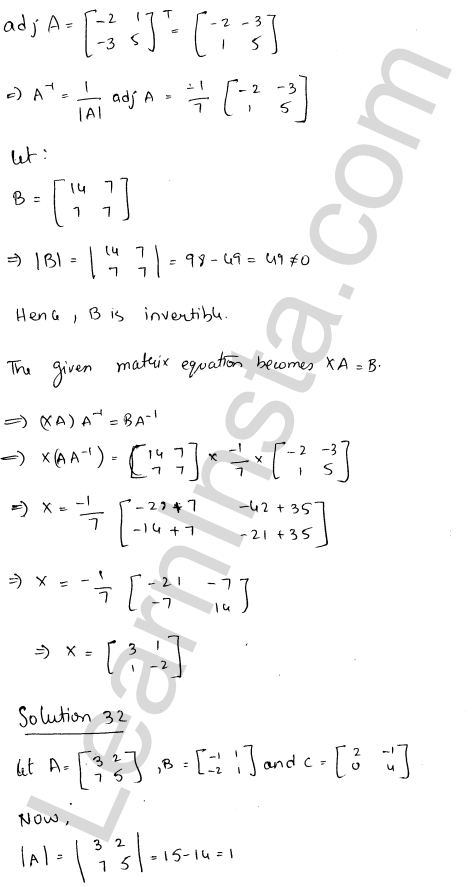 adj A = [-2 1 -3 5]^T = [-2 -3 1 5]
=> A^-1 = 1/|A| adj A = -1/7 [-2 -3 1 5]
let:
B = [14 7 7 7]
=> |B| = |14 7 7 7| = 98 - 49 = 49 ≠ 0
Hence, B is invertible.
The given matrix equation becomes XA = B.
=> (XA) A^-1 = BA^-1
=> X(AA^-1) = [14 7 7 7] × -1/7 × [-2 -3 1 5]
=> X = -1/7 [-28+7 -42+35 -14+7 -21+35]
=> X = -1/7 [-21 -7 -7 14]
=> X = [3 1 1 -2]
Solution 32
let A = [3 2 7 5], B = [-1 1 -2 1] and C = [2 -1 0 4]
Now,
|A| = |3 2 7 5| = 15-14 = 1
LearnInsta.com